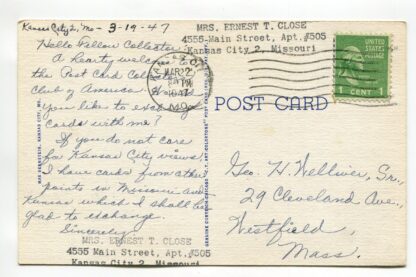 Kansas City 2, Mo - 3-19-47
MRS. ERNEST T. CLOSE
4555-Main Street, Apt. #505
Kansas City 2, Missouri
Hello Fellow Collector:
A hearty welcome to
the Post Card Collectors
Club of America. Would
you like to exchange
cards with me?
If you do not care
for Kansas City views
I have cards from other
points in Missouri and
Kansas which I shall be
glad to exchange.
Sincerely
MRS. ERNEST T. CLOSE
4555 Main Street, Apt. #505
Kansas City 2, Missouri
MAR 2
PM
1947
MO.
UNITED STATES
1 CENT 1
POST CARD
Geo. H. Welliver, Sr.,
29 Cleveland Ave.,
Westfield,
Mass.
MAX BERNSTEIN, KANSAS CITY, MO.